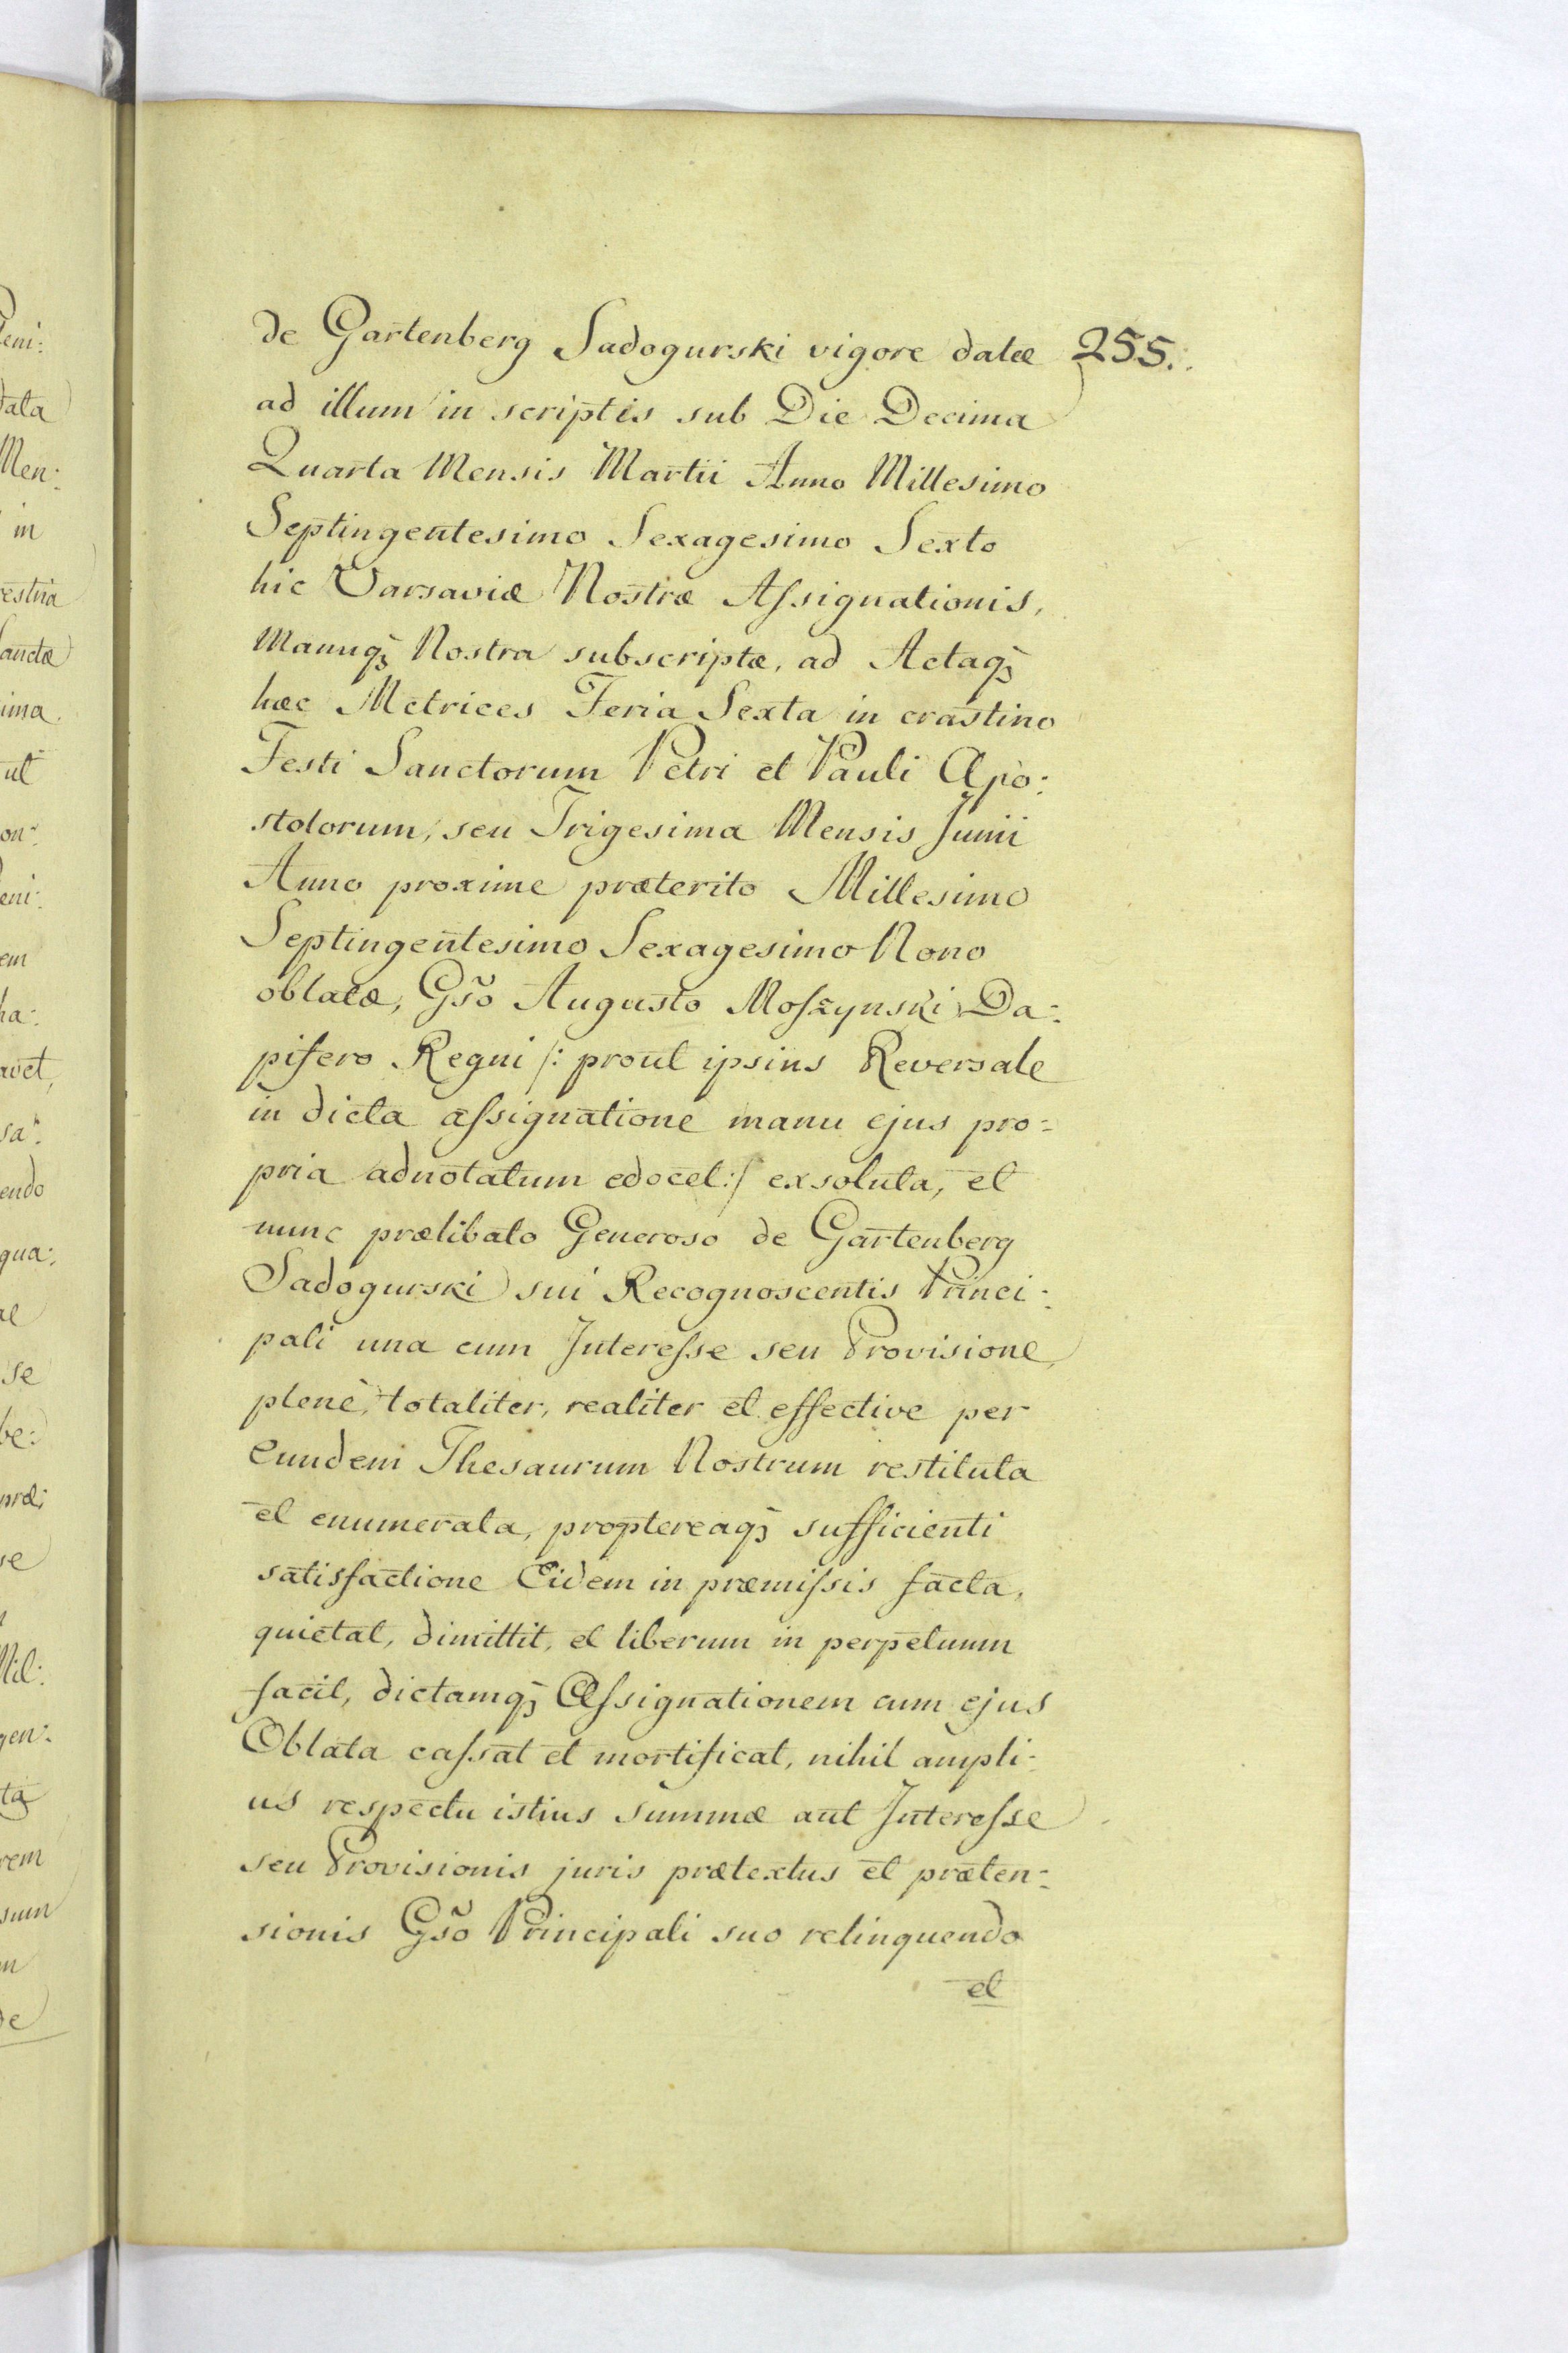 de Gartenberg Sadogurski vigore datæ 255.
ad illum in scriptis sub Die Decima
Quarta Mensis Martii Anno Millesimo
Septingentesimo Sexagesimo Sexto
hic Varsaviæ Nostræ Aſsignationis,
Manuqꝫ Nostra subscriptæ, ad Actaqꝫ
hæc Metrices Feria Sexta in crastino
Festi Sanctorum Petri et Pauli Apo:
stolorum, seu Trigesima Mensis Junii
Anno proxime præterito Millesimo
Septingentesimo Sexagesimo Nono
oblatæ, Gso Augusto Moſzynski Da:
pifero Regni /: prout ipsius Reversale
in dicta aſsignatione manu ejus pro:
pria adnotatum edocet :/ exsoluta, et
nunc prælibato Generoso de Gartenberg
Sadogurski sui Recognoscentis Princi:
pali una cum Intereſse seu Provisione,
plenè, totaliter, realiter et effective per
Eundem Thesaurum Nostrum restituta
et enumerata, proptereaqꝫ sufficienti
satisfactione Eidem in præmiſsis facta,
quietat, dimittit, et liberum in perpetuum
facit, dictamqꝫ Aſsignationem cum ejus
Oblata caſsat et mortificat, nihil ampli:
us respectu istius summæ aut Intereſse
seu Provisionis juris prætextus et præten:
sionis Gso Principali suo relinquendo
et
eni:
data
Men:
in
estria
Sanctæ
ima.
ut
on:
eni:
em
ha:
avet,
sa:
endo
qua:
se
be:
se
Mil:
gen:
ta
rem
sum
de